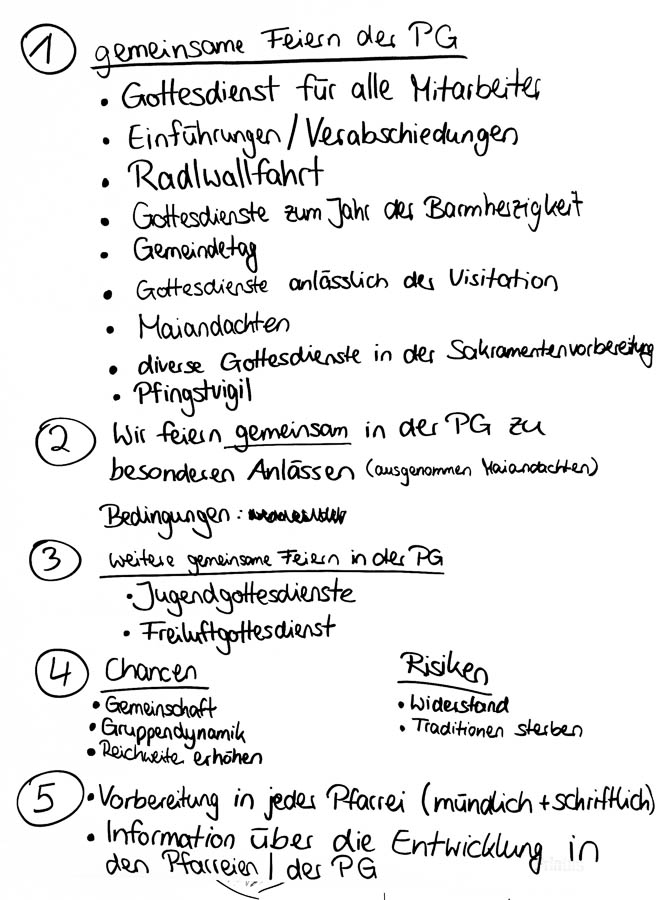 1 gemeinsame Feiern der PG
• Gottesdienst für alle Mitarbeiter
• Einführungen/Verabschiedungen
• Radlwallfahrt
• Gottesdienste zum Jahr der Barmherzigkeit
• Gemeindetag
• Gottesdienste anlässlich der Visitation
• Maiandachten
• diverse Gottesdienste in der Sakramentenvorbereitung
• Pfingstvigil
2 Wir feiern gemeinsam in der PG zu
besonderen Anlässen (ausgenommen Maiandachten)
Bedingungen:
3 weitere gemeinsame Feiern in der PG
• Jugendgottesdienste
• Freiluftgottesdienst
4 Chancen Risiken
• Gemeinschaft • Widerstand
• Gruppendynamik • Traditionen sterben
• Reichweite erhöhen
5 • Vorbereitung in jeder Pfarrei (mündlich + schriftlich)
• Information über die Entwicklung in
den Pfarreien / der PG